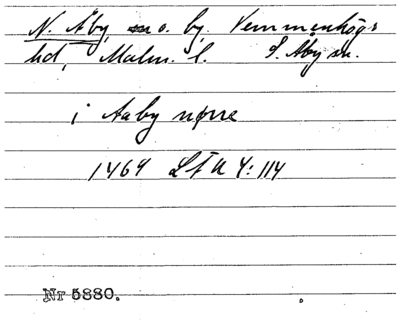 N. Åby, o. by, Vemmenhögs
hd, Malm. l. S. Åby sn.
i Aaby nørre
1469 LFU 4:114
Nr 5880.